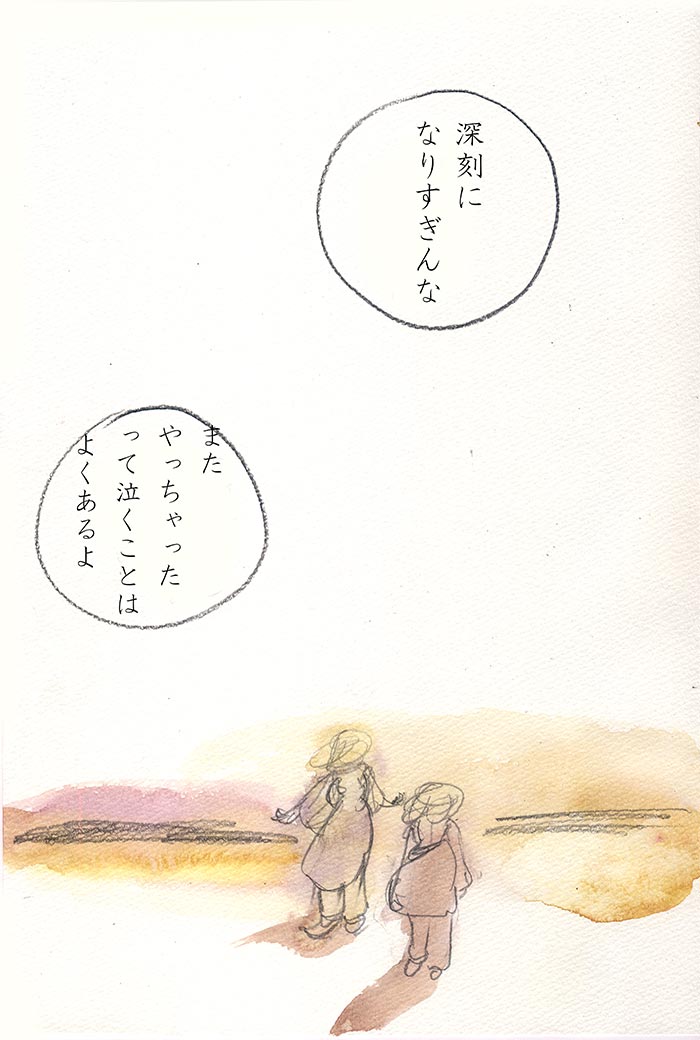 深刻に
なりすぎんな
また
やっちゃった
って泣くことは
よくあるよ